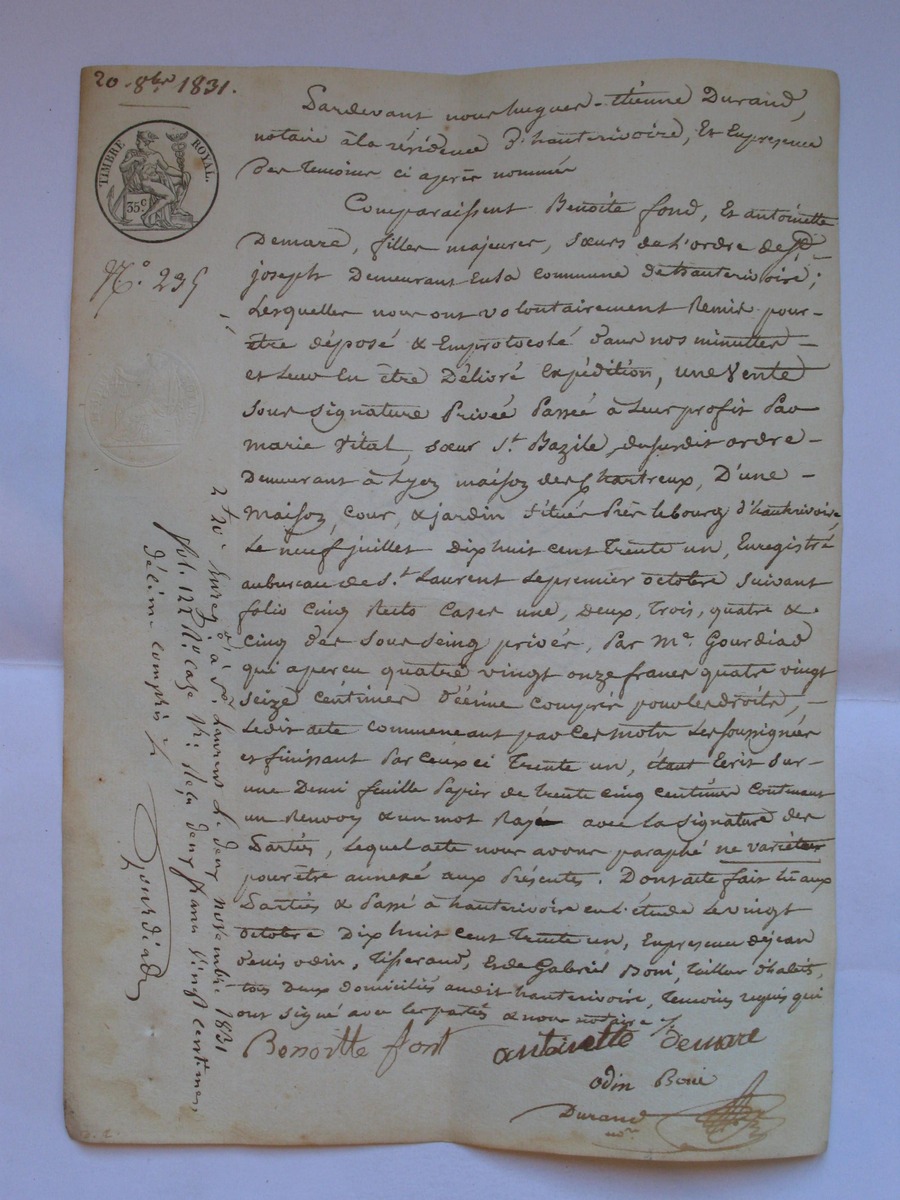 20 8bre 1831.
TIMBRE ROYAL.
35 c
N.° 235
Pardevant nous hugues-étienne Durand,
notaire à la résidence d'hauterivoire, Et En présence
des temoins ci après nommés
Comparaissent Benoite fond, Et antoinette
Demare, filles majeures, sœurs de l'ordre de St
joseph Demeurant en la commune de hauterivoire;
Lesquelles nous ont volontairement Remis pour
être déposé & Emprotocolé dans nos minuttes
et leur En être Délivré Expédition, une Vente
Sous Signature Privée Passée à Leur profit Par
marie Vital, sœur St. Bazile, dususdit ordre
Demeurant à Lyon maison des Chartreux, D'une
Maison, Cour, & jardin située Près le bourg d'hauterivoire
Le neuf juillet Dix huit cent Trente un, Enregistré
au bureau de St. Laurent Le premier octobre suivant
folio Cinq Recto Cases une, Deux, Trois, quatre &
Cinq des Sous Seing privés, Par Me. Gourdiad
qui a perçu quatre vingt onze francs quatre vingt
seize centimes Décime Compris pour les droits,
Ledit acte commençant par Ces mots Les soussignés
et finissant Par Ceux ci Trente un, étant Ecrit Sur
une Demi feuille Papier de trente cinq centimes Contenant
un Renvoy & un mot Rayé avec la Signature des
Parties, Lequel acte nous avons paraphé ne variétur
pour être annexé aux Présentes. Dont acte fait Lu aux
Parties & Passé à hauterivoire en l'étude Le vingt
octobre Dix huit Cent Trente un, En présence de jean
denis odin, Tisserand, Et de Gabriel Boni, Tailleur d'habits,
tous Deux domiciliés audit hauterivoire, Temoins requis qui
ont signé avec les parties & nous notaire
Benoitte font
antoinette demare
odin Boni
Durand
nore
Enregé à St. Laurent Le deux novembre 1831
fol. 122 Vo case Re deux francs vingt centimes,
décime compris
Gourdiad